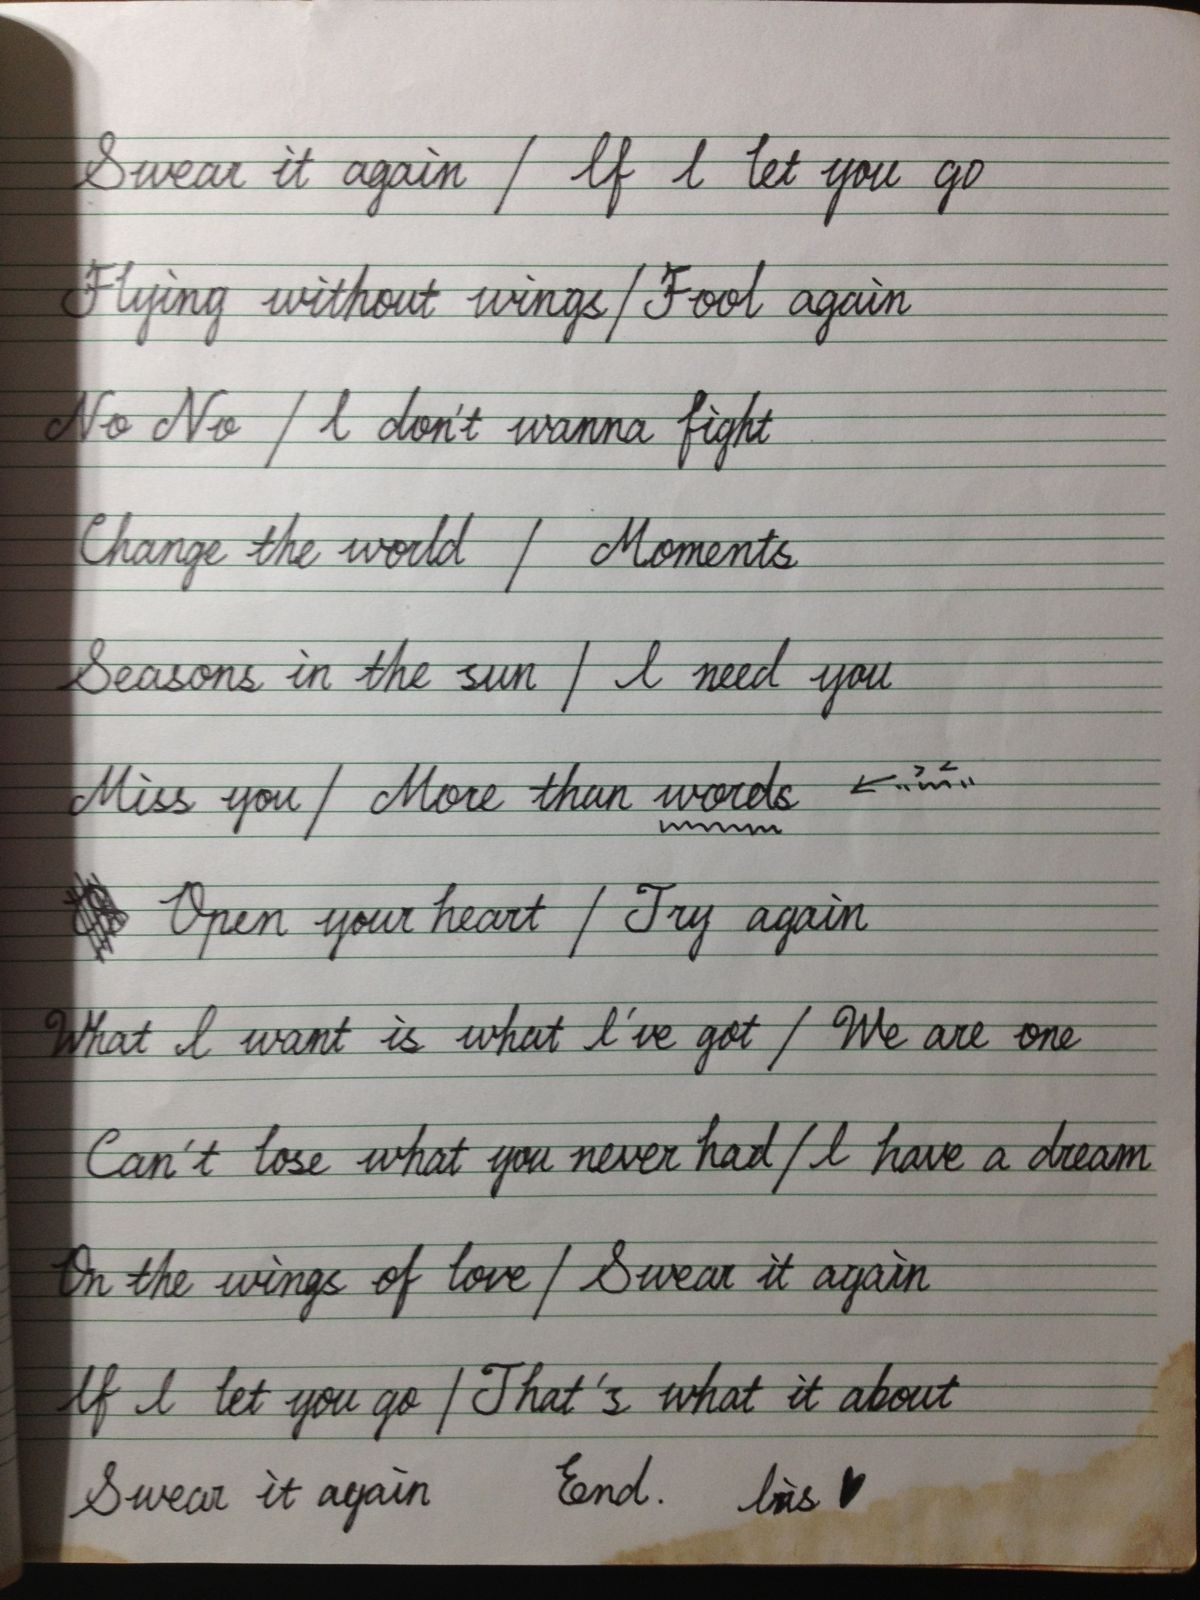 Swear it again / If I let you go
Flying without wings / Fool again
No No / I don't wanna fight
Change the world / Moments
Seasons in the sun / I need you
Miss you / More than words
Open your heart / Try again
What I want is what I've got / We are one
Can't lose what you never had / I have a dream
On the wings of love / Swear it again
If I let you go / That's what it about
Swear it again End.